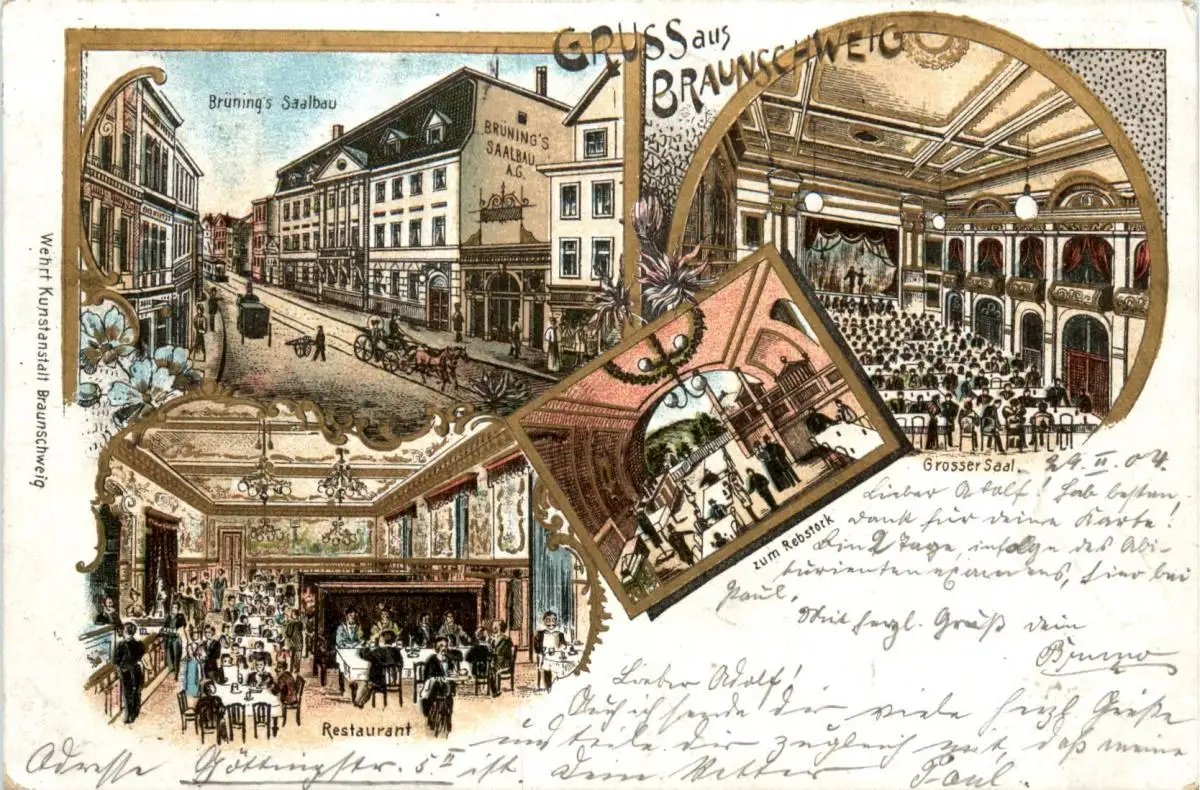 GRUSS aus
BRAUNSCHWEIG
Brüning's Saalbau
BRÜNING'S
SAALBAU
A.G.
Grosser Saal.
zum Rebstock
Restaurant
Wehrt Kunstanstalt Braunschweig
29. II. 04.
Lieber Adolf! Hab besten
Dank für deine Karte!
Bin 2 Tage, infolge des Abi-
turientenexamens, hier bei
Paul.
Mit herzl. Gruß dein
Bruno
Lieber Adolf!
Auch ich sende dir viele herzl. Grüße
und teile dir zugleich mit, daß meine
Adresse Göttingstr. 5 II ist. Dein Vetter Paul.